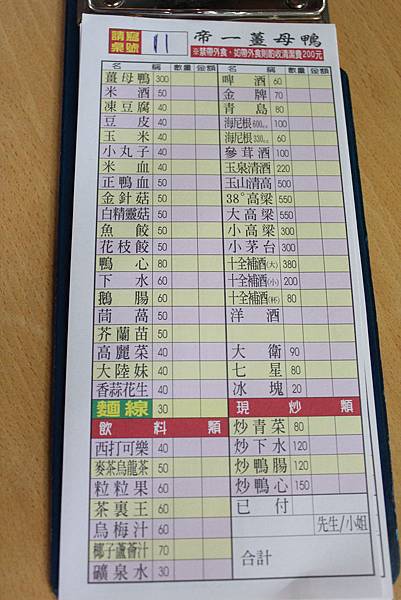 請寫桌號 11 帝一薑母鴨
※禁帶外食，如帶外食則酌收清潔費200元
名稱 數量 金額 名稱 數量 金額
薑母鴨 300 啤酒 60
米酒 50 金牌 70
凍豆腐 40 青島 80
豆皮 40 海尼根600c.c. 100
玉米 40 海尼根330c.c. 60
小丸子 40 參茸酒 100
米血 40 玉泉清酒 220
正鴨血 50 玉山清高 500
金針菇 50 38°高粱 550
白精靈菇 50 大高粱 550
魚餃 50 小高粱 300
花枝餃 50 小茅台 300
鴨心 80 十全補酒(大) 380
下水 60 十全補酒(小) 200
鵝腸 60 十全補酒(杯) 80
茼萵 50 洋酒
芥蘭苗 50
高麗菜 40 大衛 90
大陸妹 40 七星 80
香蒜花生 40 冰塊 20
麵線 30 現炒類
飲料類 炒青菜 80
西打可樂 40 炒下水 120
麥茶烏龍茶 50 炒鴨腸 120
粒粒果 60 炒鴨心 150
茶裏王 60 已付
烏梅汁 60 先生/小姐
椰子蘆薈汁 70 合計
礦泉水 30